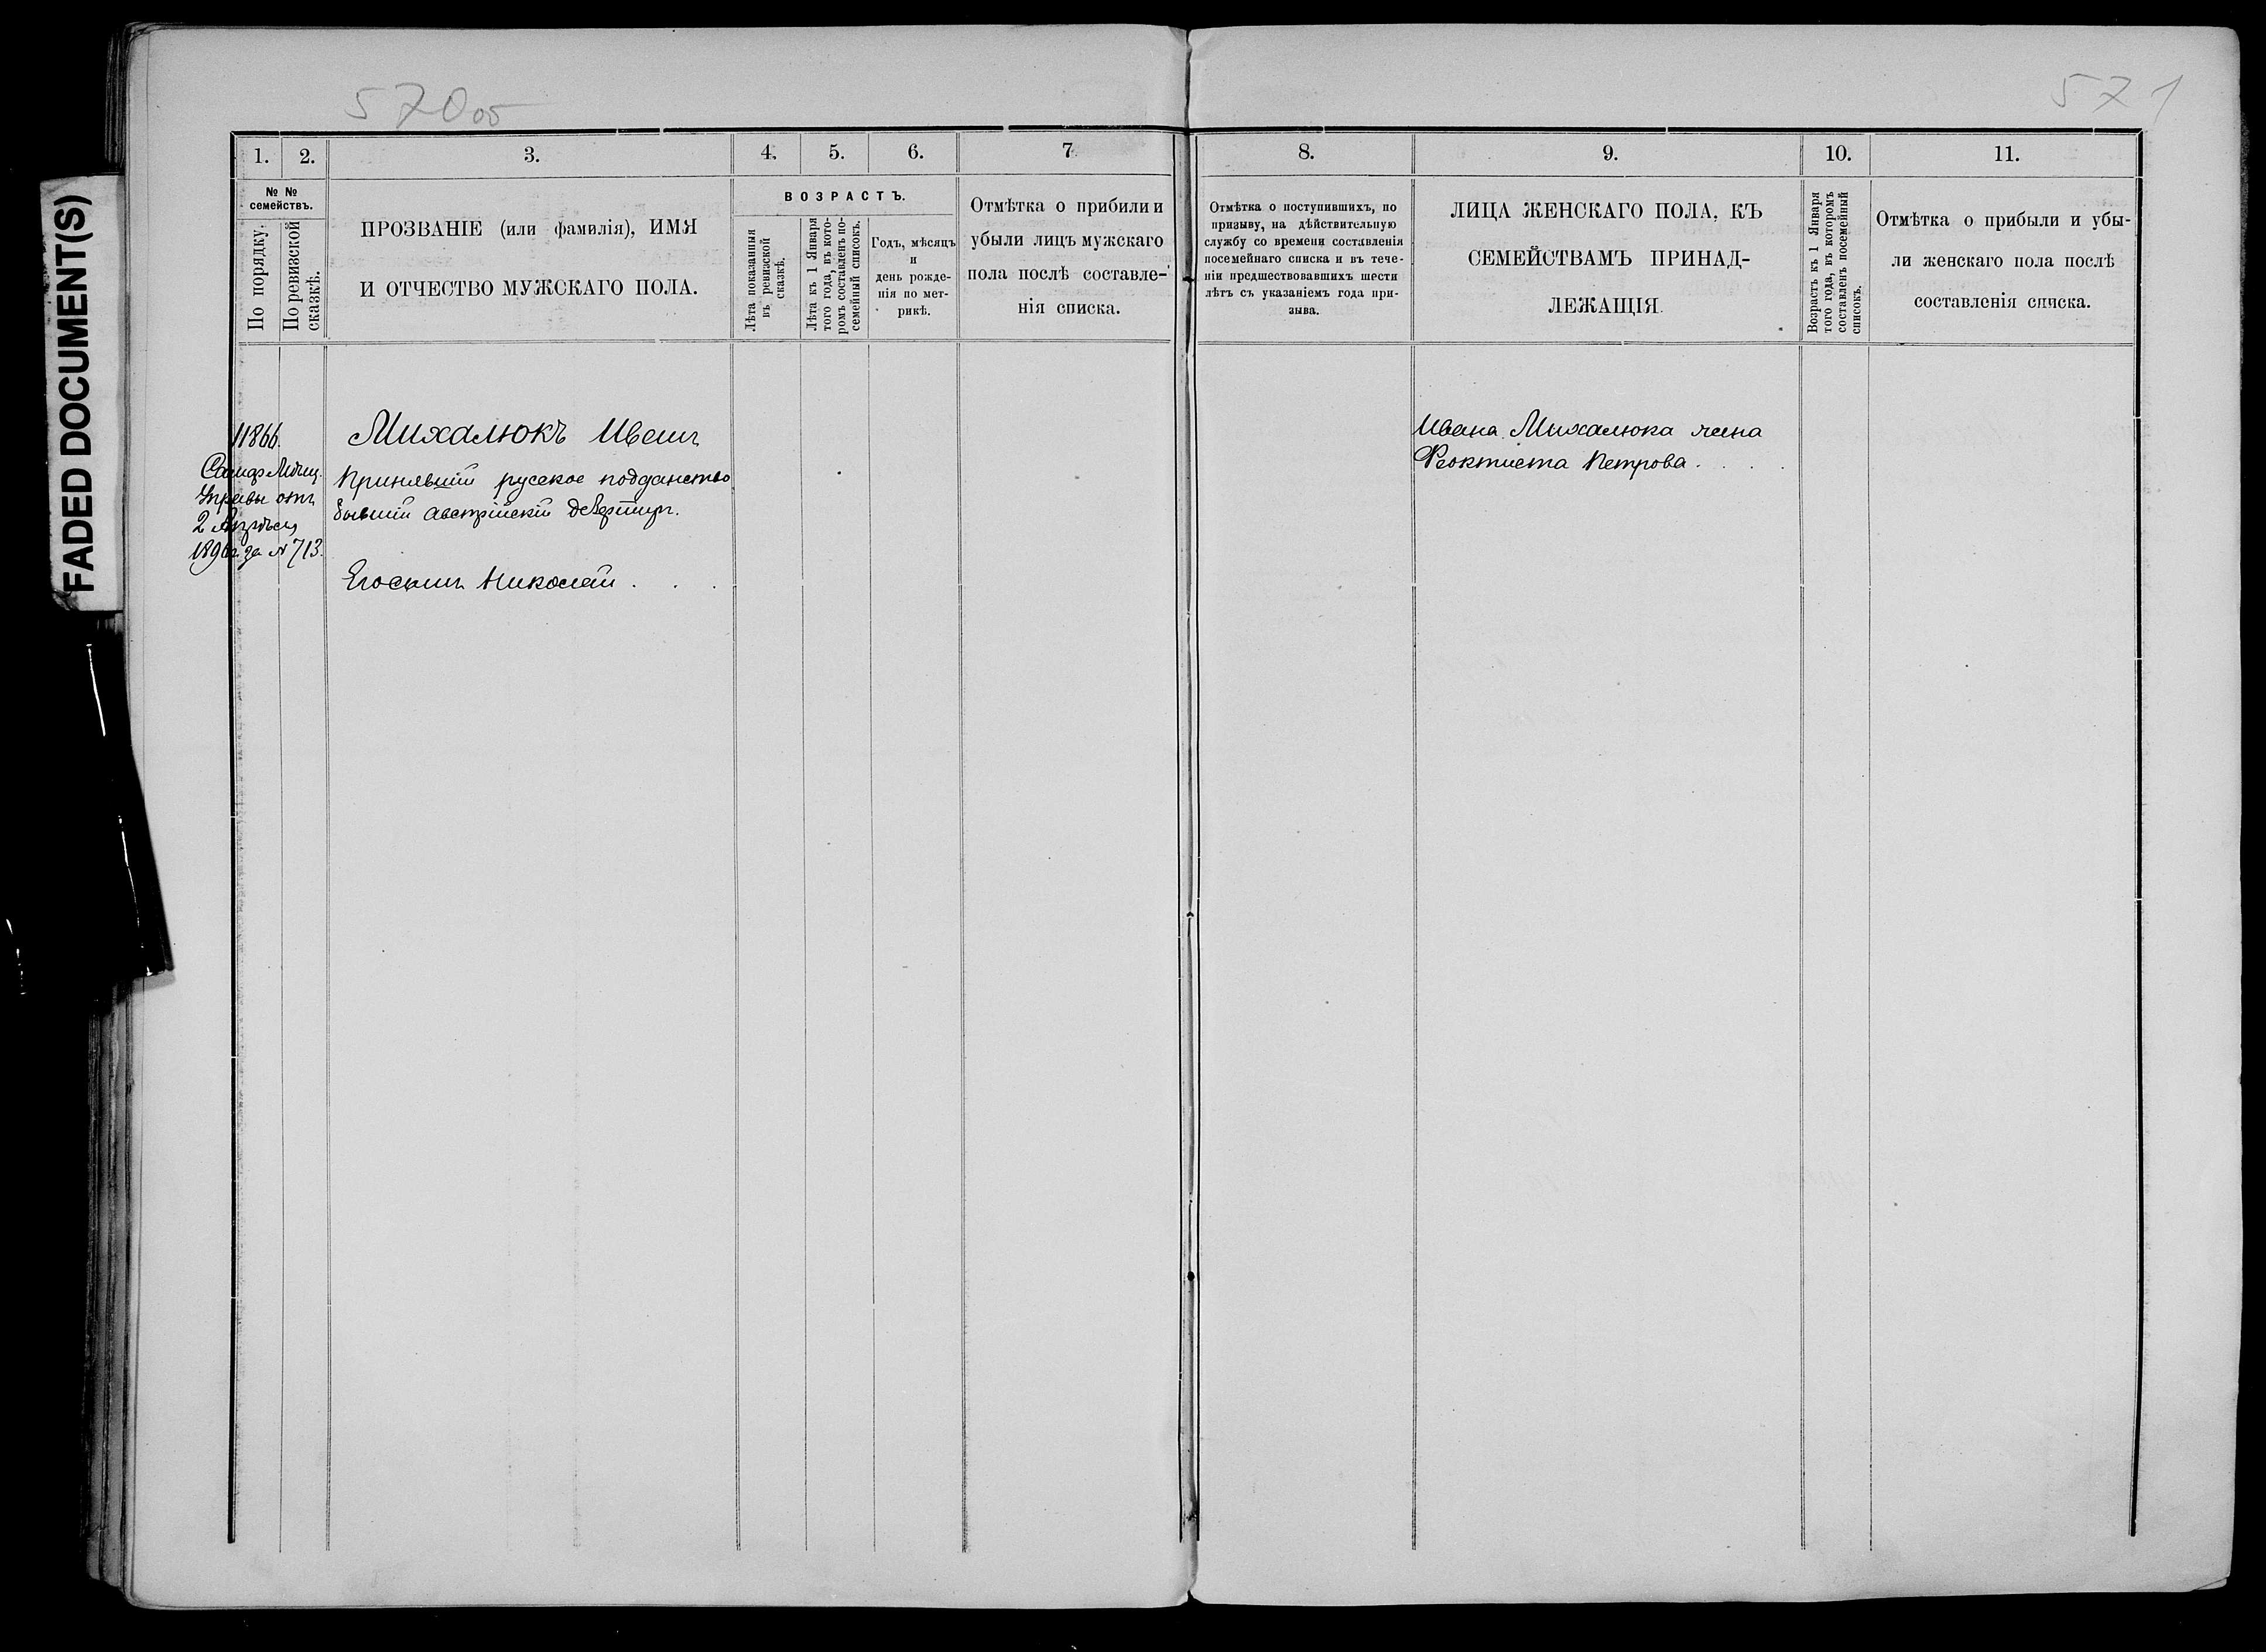 FADED DOCUMENT(S)
570об
571
1.
2.
3.
4.
5.
6.
7
8.
9.
10.
11.
№ №
семействъ.
По порядку.
По ревизской
сказкѣ.
ПРОЗВАНІЕ (или фамилія), ИМЯ
И ОТЧЕСТВО МУЖСКАГО ПОЛА.
ВОЗРАСТЪ.
Лѣта показанныя
въ ревизской
сказкѣ.
Лѣта къ 1 Января
того года, въ кото-
ромъ составленъ по-
семейный списокъ.
Годъ, мѣсяцъ
и
день рожде-
нія по мет-
рикѣ.
Отмѣтка о прибили и
убыли лицъ мужскаго
пола послѣ составле-
нія списка.
Отмѣтка о поступившихъ, по
призыву, на дѣйствительную
службу со времени составленія
посемейнаго списка и въ тече-
ніи предшествовавшихъ шести
лѣтъ съ указаніемъ года при-
зыва.
ЛИЦА ЖЕНСКАГО ПОЛА, КЪ
СЕМЕЙСТВАМЪ ПРИНАД-
ЛЕЖАЩІЯ.
Возрастъ къ 1 Января
того года, въ которомъ
составленъ посемейный
списокъ.
Отмѣтка о прибыли и убы-
ли женскаго пола послѣ
составленія списка.
11866.
Управы отъ
2 Апрѣля
за № 713.
Михалюкъ Иванъ
Принявший русское подданство
бывший австрійскій дезертиръ.
Его сынъ Николай . . .
Ивана Михалюка жена
Феоктиста Петрова . . .